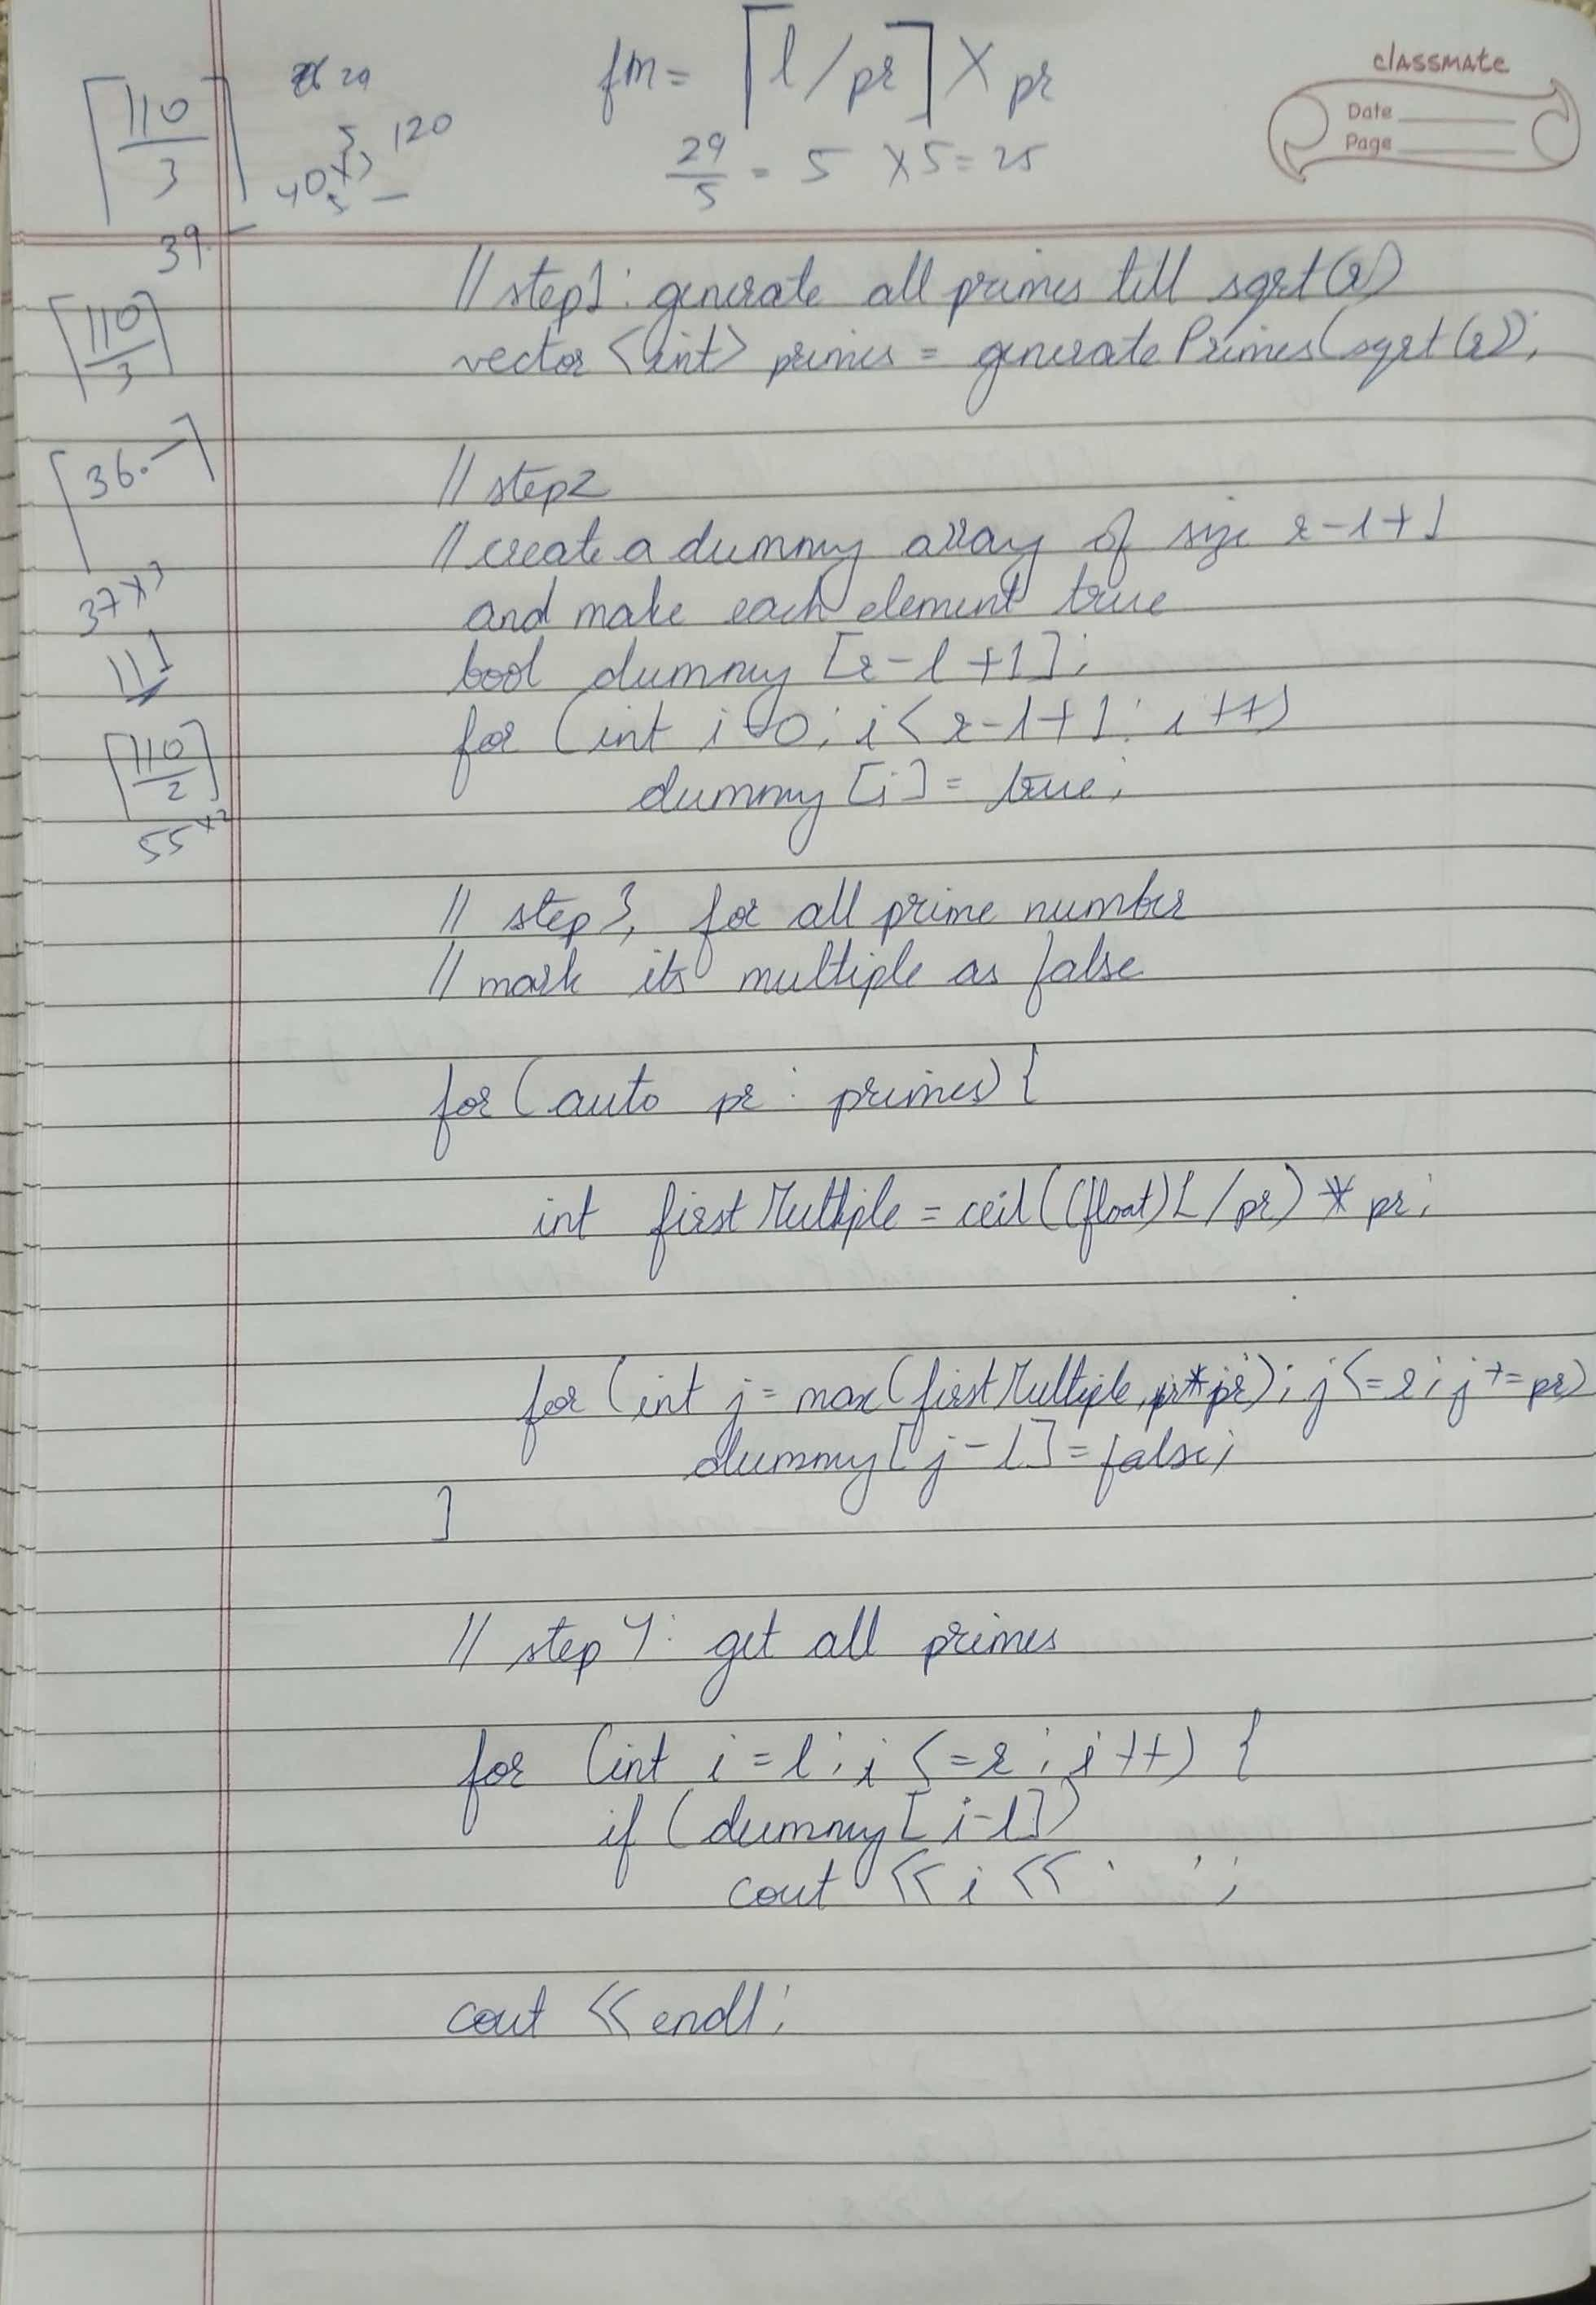 classmate
Date
Page
fm = ⌈l/pr⌉ × pr
29/5 = 5 × 5 = 25
⌈110/3⌉
29
5
120
40
39.
⌈110/3⌉
⌈36.—⌉
37×3
111
⌈110/2⌉
55×2
// step1: generate all primes till sqrt(r)
vector <int> primes = generatePrimes(sqrt(r));
// step2
// create a dummy array of size r-l+1
and make each element true
bool dummy [r-l+1];
for (int i=0; i<r-l+1; i++)
dummy [i] = true;
// step 3, for all prime number
// mark its multiple as false
for (auto pr : primes) {
int firstMultiple = ceil((float)L/pr) * pr;
for (int j = max(firstMultiple, pr*pr); j<=r; j+=pr)
dummy[j-l] = false;
}
// step 4: get all primes
for (int i=l; i<=r; i++) {
if (dummy[i-l])
cout << i << ' ';
cout << endl;